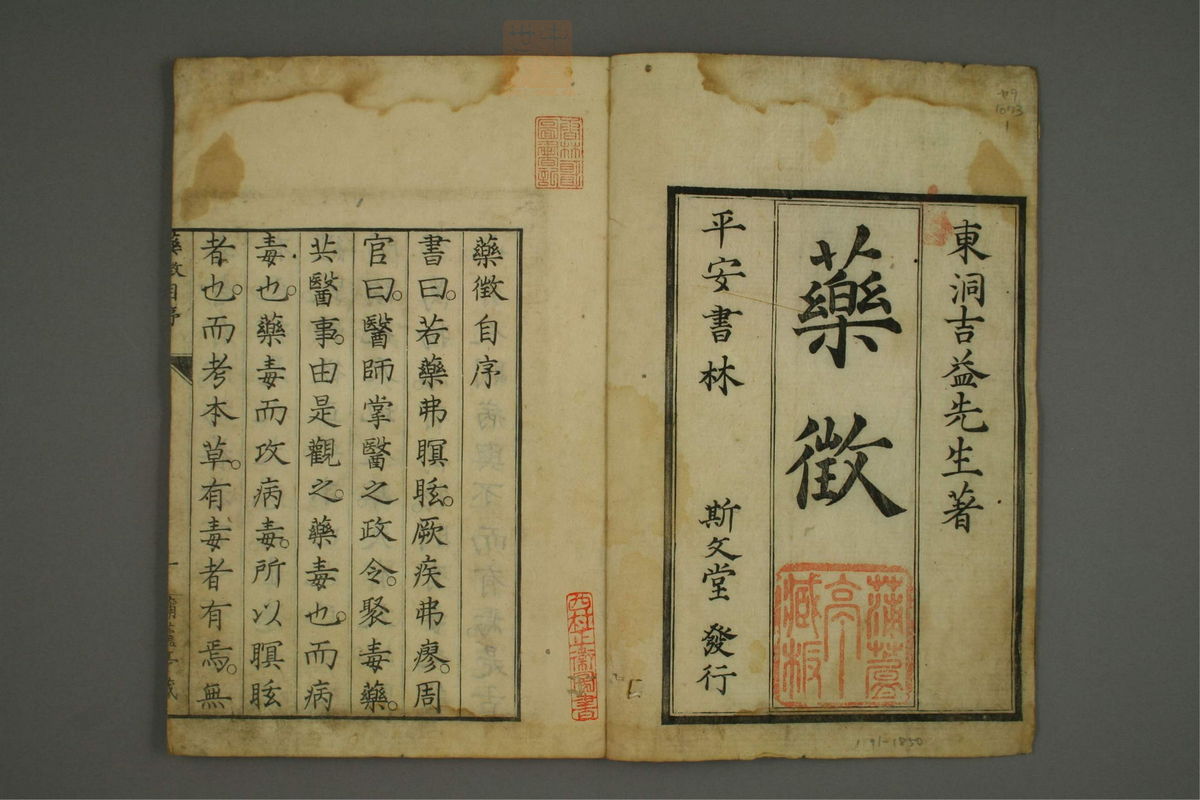 東洞吉益先生著
藥徴
平安書林 斯文堂發行
藥徴自序
書曰。若藥弗瞑眩。厥疾弗瘳。周
官曰。醫師掌醫之政令。聚毒藥。
共醫事。由是觀之。藥毒也。而病
毒也。藥毒而攻病毒。所以瞑眩
者也。而考本草。有毒者有焉。無
藥徴自序
西村正衞圖書